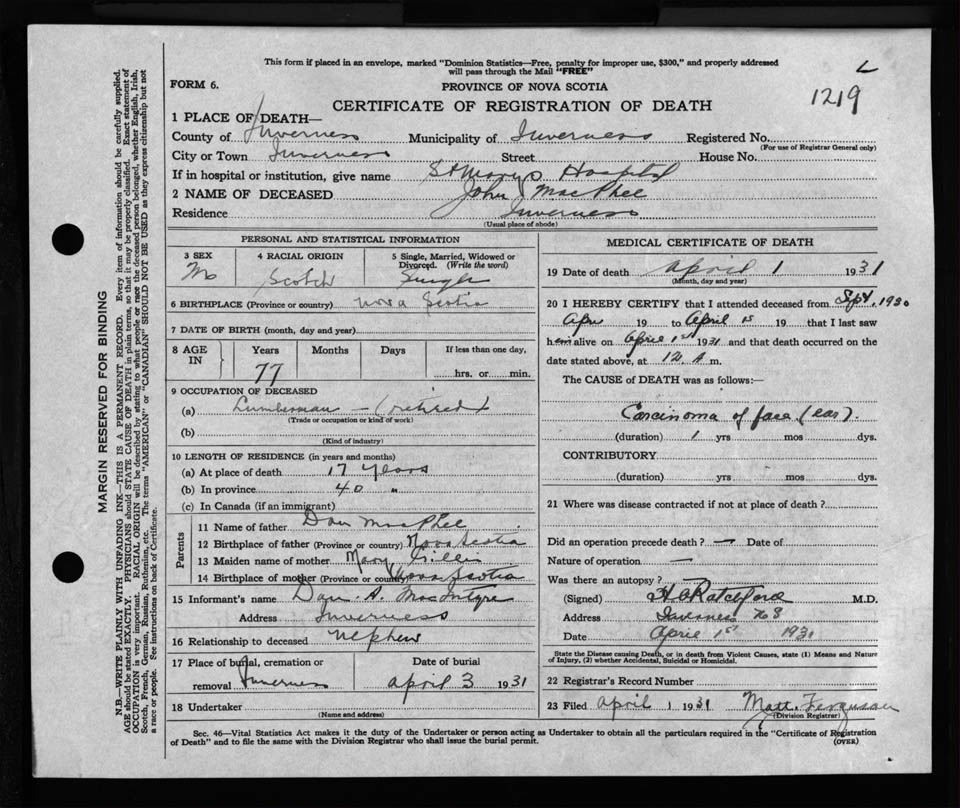 This form if placed in an envelope, marked "Dominion Statistics—Free, penalty for improper use, $300," and properly addressed
will pass through the Mail "FREE"
L
1219
FORM 6.
PROVINCE OF NOVA SCOTIA
CERTIFICATE OF REGISTRATION OF DEATH
1 PLACE OF DEATH—
County of Inverness Municipality of Inverness Registered No.
(For use of Registrar General only)
City or Town Inverness Street House No.
If in hospital or institution, give name St Marys Hospital
2 NAME OF DECEASED John MacPhee
Residence Inverness
(Usual place of abode)
PERSONAL AND STATISTICAL INFORMATION
3 SEX
M
4 RACIAL ORIGIN
Scotch
5 Single, Married, Widowed or
Divorced. (Write the word)
Single
6 BIRTHPLACE (Province or country) Nova Scotia
7 DATE OF BIRTH (month, day and year)
8 AGE
IN
Years Months Days If less than one day,
77
hrs. or min.
9 OCCUPATION OF DECEASED
(a) Lumberman — (retired)
(Trade or occupation or kind of work)
(b)
(Kind of industry)
10 LENGTH OF RESIDENCE (in years and months)
(a) At place of death 17 years
(b) In province 40 "
(c) In Canada (if an immigrant)
Parents
11 Name of father Dan MacPhee
12 Birthplace of father (Province or country) Nova Scotia
13 Maiden name of mother Mary Gillis
14 Birthplace of mother (Province or country) Nova Scotia
15 Informant's name Dan. A. MacIntyre
Address Inverness
16 Relationship to deceased nephew
17 Place of burial, cremation or
removal Inverness
Date of burial
April 3 1931
18 Undertaker
(Name and address)
MEDICAL CERTIFICATE OF DEATH
19 Date of death April 1 1931
(Month, day and year)
20 I HEREBY CERTIFY that I attended deceased from Sept, 1930
19 to April 1st 19 that I last saw
him alive on April 1st 1931 and that death occurred on
date stated above, at 12. A. m.
The CAUSE of DEATH was as follows:—
Carcinoma of face (ear).
(duration) 1 yrs mos dys.
CONTRIBUTORY
(duration) yrs mos dys.
21 Where was disease contracted if not at place of death?
Did an operation precede death? — Date of
Nature of operation —
Was there an autopsy?
(Signed) H Ratchford M.D.
Address Inverness N S
Date April 1st 1931
State the Disease causing Death, or in death from Violent Causes, state (1) Means and Nature
of Injury, (2) whether Accidental, Suicidal or Homicidal.
22 Registrar's Record Number
23 Filed April 1 1931 Matt. Ferguson
(Division Registrar)
Sec. 46—Vital Statistics Act makes it the duty of the Undertaker or person acting as Undertaker to obtain all the particulars required in the "Certificate of Registration
of Death" and to file the same with the Division Registrar who shall issue the burial permit.
(OVER)
MARGIN RESERVED FOR BINDING
N.B.—WRITE PLAINLY WITH UNFADING INK—THIS IS A PERMANENT RECORD. Every item of information should be carefully supplied.
AGE should be stated EXACTLY. PHYSICIANS should STATE CAUSE OF DEATH in plain terms, so that it may be properly classified. Exact statement of
OCCUPATION is very important. RACIAL ORIGIN will be described by stating to what people or race the deceased person belonged, whether English, Irish,
Scotch, French, German, Russian, Ruthenian, etc. The terms "AMERICAN" or "CANADIAN" SHOULD NOT BE USED as they express citizenship but not
a race or people. See instructions on back of Certificate.